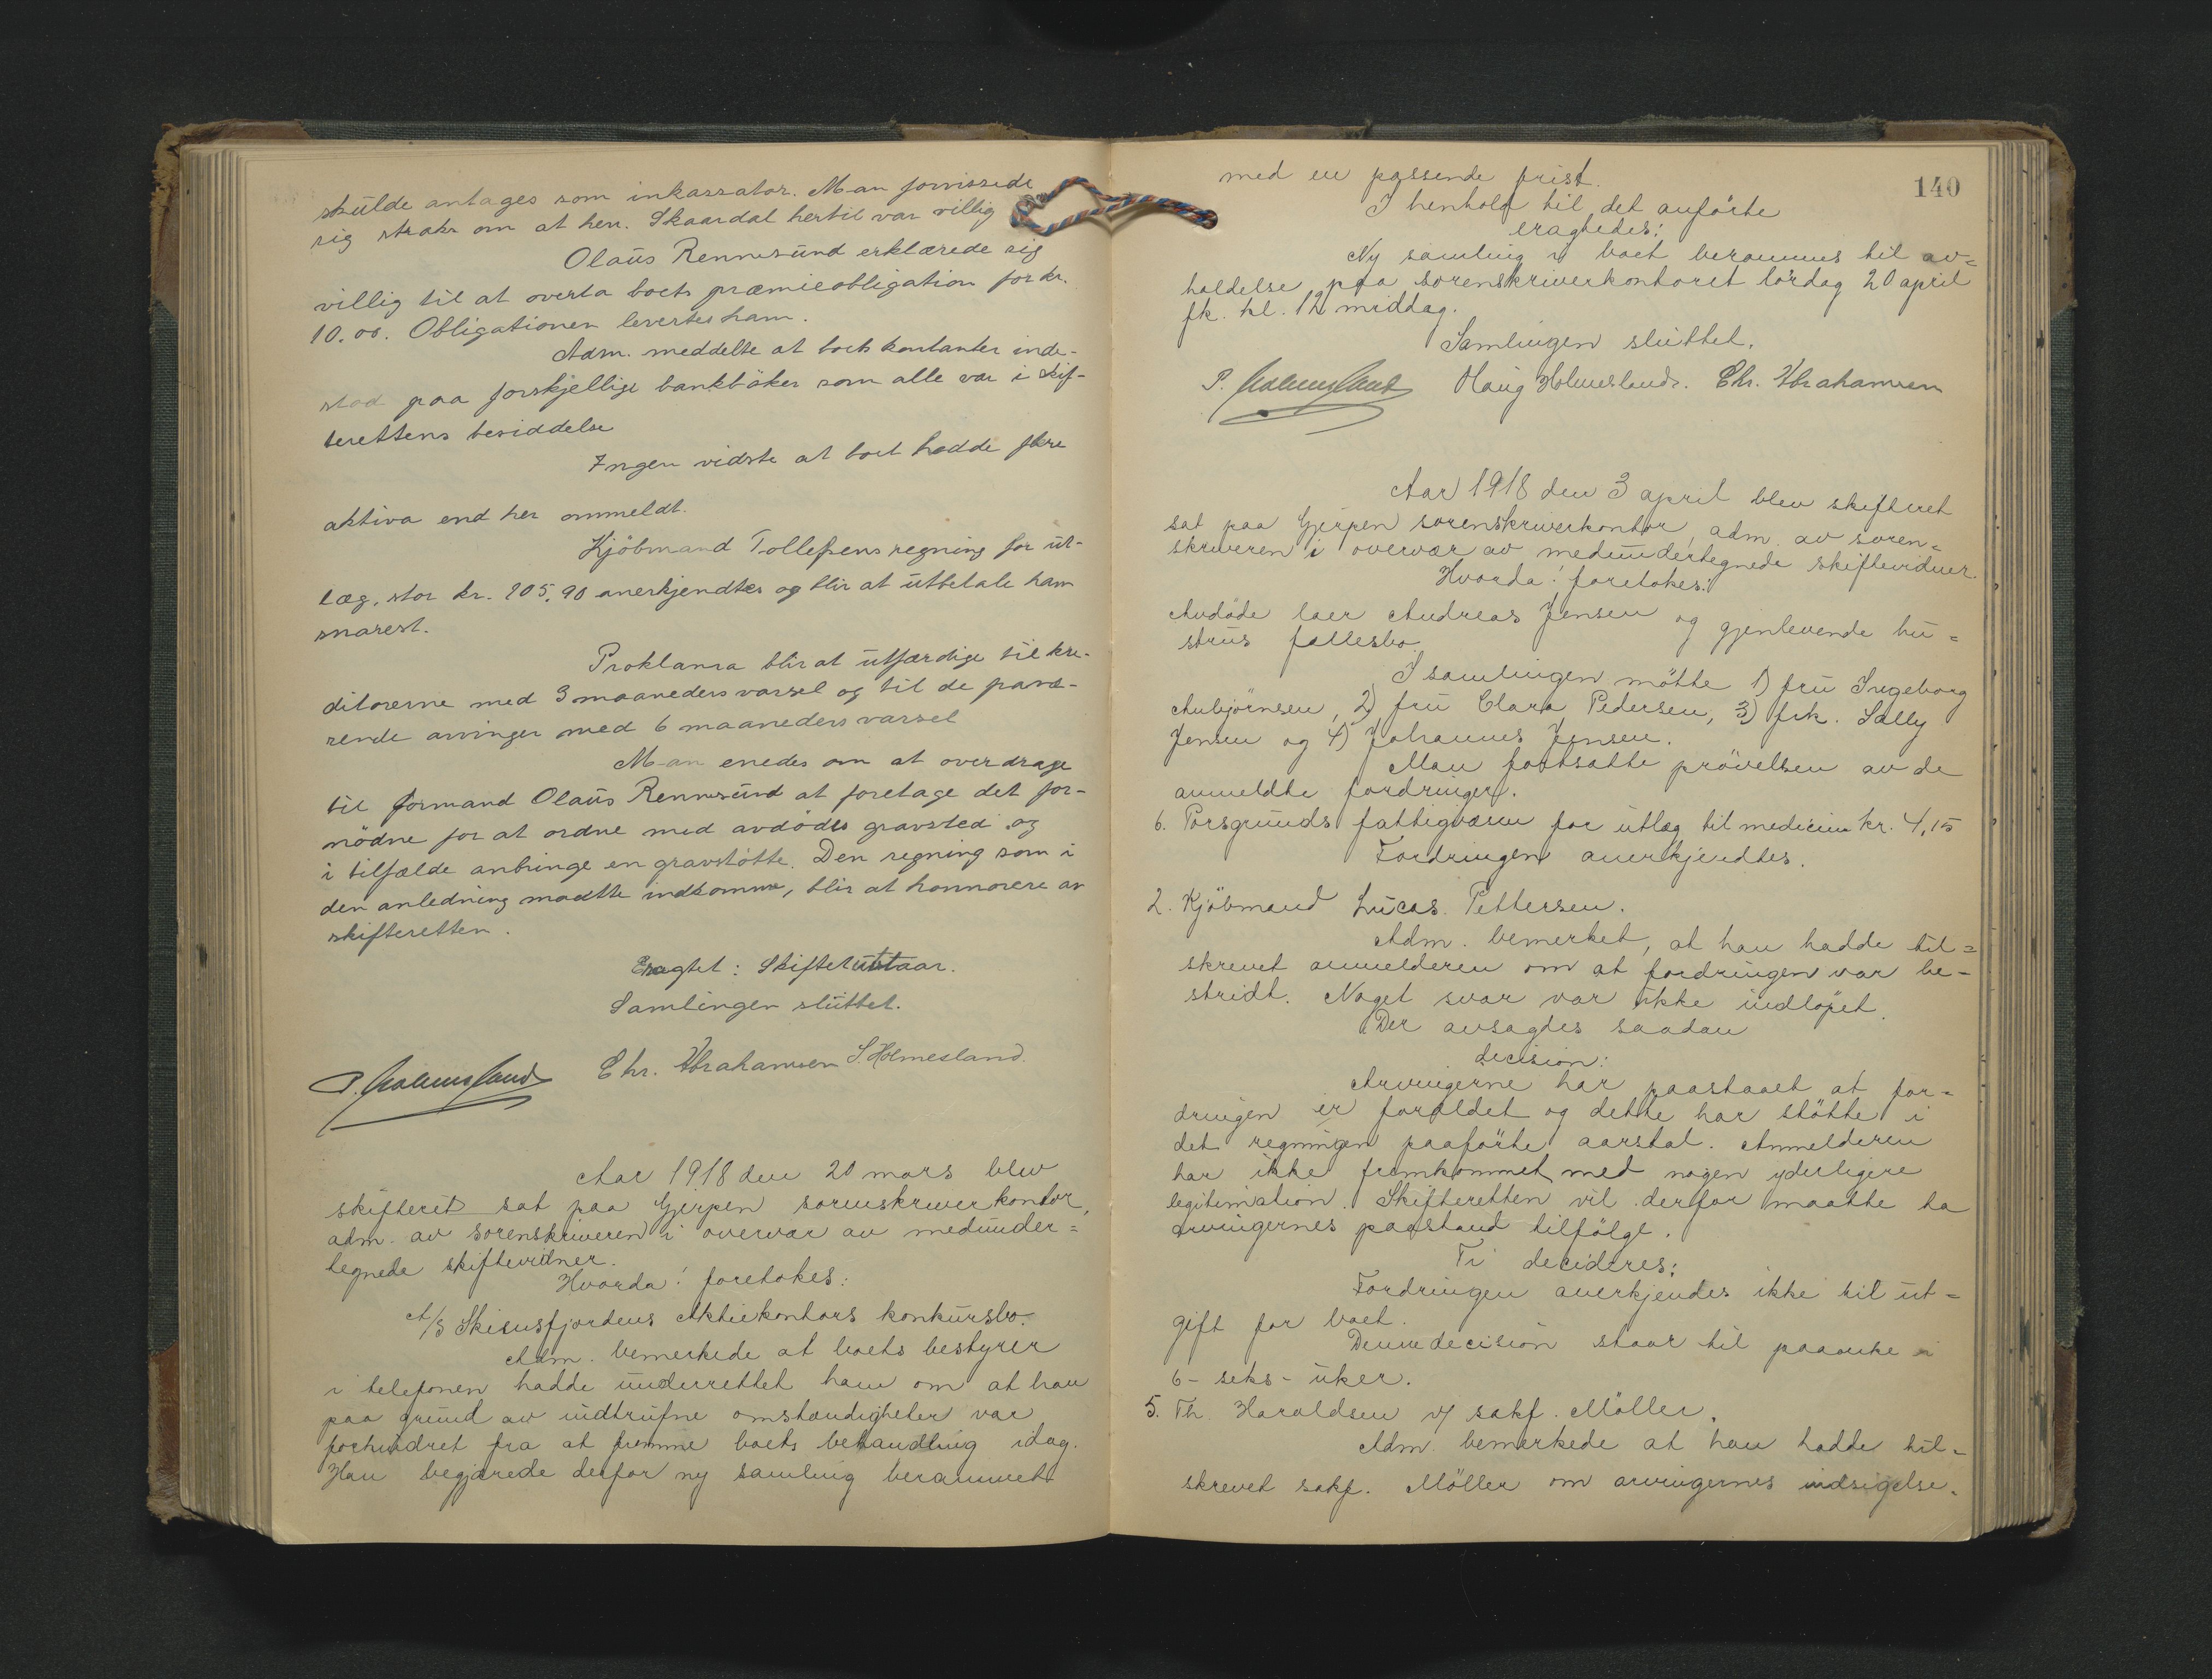 skulde antages som inkassator. Man forvissede
sig straks om at herr. Skaardal hertil var villig
Olaüs Rennesünd erklærede sig
villig til at overta boets præmieobligation for kr.
10.00. Obligationen levertes ham.
Adm. meddelte at boets kontanter inde-
stod paa forskjellige bankböker som alle var i skif-
terettens besiddelse
Ingen vidste at boet hadde flere
aktiva end her ommeldt.
Kjöbmand Tollefsens regning for üt-
læg, stor kr. 205,90 anerkjendtes og blir at ütbetale ham
snarest.
Proklama blir at ütfærdige til kre-
ditorerne med 3 maaneders varsel og til de fravæ-
rende arvinger med 6 maaneders varsel
Man enedes om at overdrage
til formand Olaüs Rennesünd at foretage det for-
nödne for at ordne med avdödes gravsted og
i tilfælde anbringe en gravstötte. Den regning som i
den anledning maatte indkomme, blir at honnorere av
skifteretten.
Eragtet: Skiftet ütstaar.
Samlingen slüttet.
P. Holmesland Chr. Abrahamsen S. Holmesland.
Aar 1918 den 20 mars blev
skifteret sat paa Gjerpen sorenskriverkontor,
adm. av sorenskriveren i overvær av medünder=
tegnede skiftevidner.
Hvorda! foretokes:
A/S Skiensfjordens Aktiekontors konkürsbo.
Adm. bemerkede at boets bestyrer
i telefonen hadde ünderrettet ham om at han
paa gründ av indtrüfne omstændigheter var
forhindret fra at fremme boets behandling idag.
Han begjærede derfor ny samling berammet
140
med en passende frist.
I henhold til det anförte
eragtedes:
Ny samling i boet berammes til av=
holdelse paa sorenskriverkontoret lördag 20 april
fk. kl. 12 middag.
Samlingen slüttet.
P. Holmesland Haüg Holmesland. Chr. Abrahamsen
Aar 1918 den 3 april blev skifteret
sat paa Gjerpen sorenskriverkontor, adm. av soren=
skriveren i overvær av medündertegnede skiftevidner.
Hvorda! foretokes:
Avdöde loer Andreas Jensen og gjenlevende hü=
strüs fællesbo.
I samlingen mötte 1) frü Ingeborg
Anbjörnsen, 2) frü Clara Pedersen, 3) frk. Sally
Jensen og 4) Johannes Jensen.
Man fortsatte prövelsen av de
anmeldte fordringer.
6. Porsgründs fattigvæsen for ütlæg til medicin kr. 4,15
Fordringen anerkjendtes.
2. Kjöbmand Lücas Pettersen.
Adm. bemerket, at han hadde til=
skrevet anmelderen om at fordringen var be-
stridt. Noget svar var ikke indlöpet.
Der avsagdes saadan
decision:
Arvingerne har paastaaet at for=
dringen er forældet og dette har stötte i
det regningen paaförte aarstal. Anmelderen
har ikke fremkommet med nogen yderligere
legitimation. Skifteretten vil derfor maatte ta
arvingernes paastand tilfölge.
Ti decideres:
Fordringen anerkjendes ikke til üt=
gift for boet.
Denne decision staar til paaanke i
6 - seks - üker.
5. Th. Haraldsen v/ sakf. Möller.
Adm. bemerkede at han hadde til=
skrevet sakf. Möller om arvingernes indsigelse.